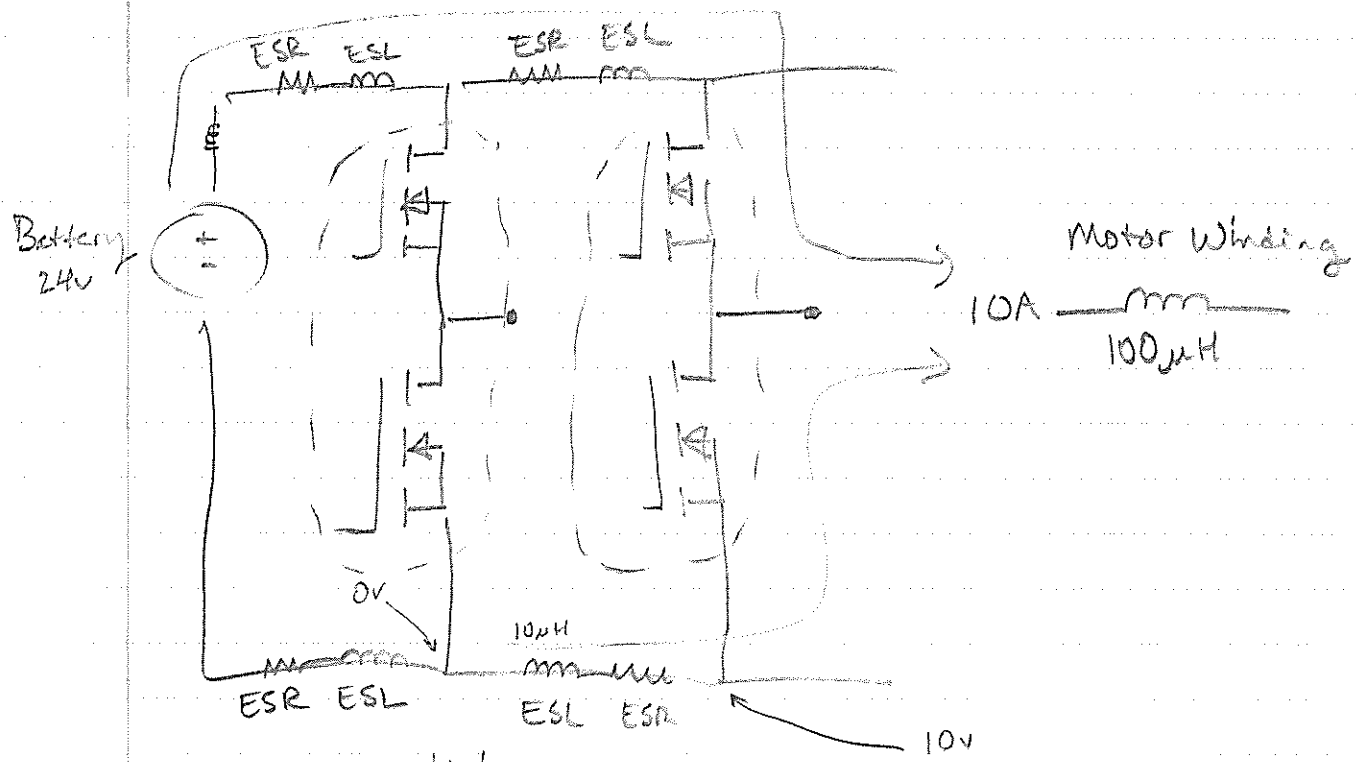 ESR ESL
ESR ESL
+
-
Battery
24v
Motor Winding
10A
100μH
0v
10μH
ESR ESL
ESL ESR
10v